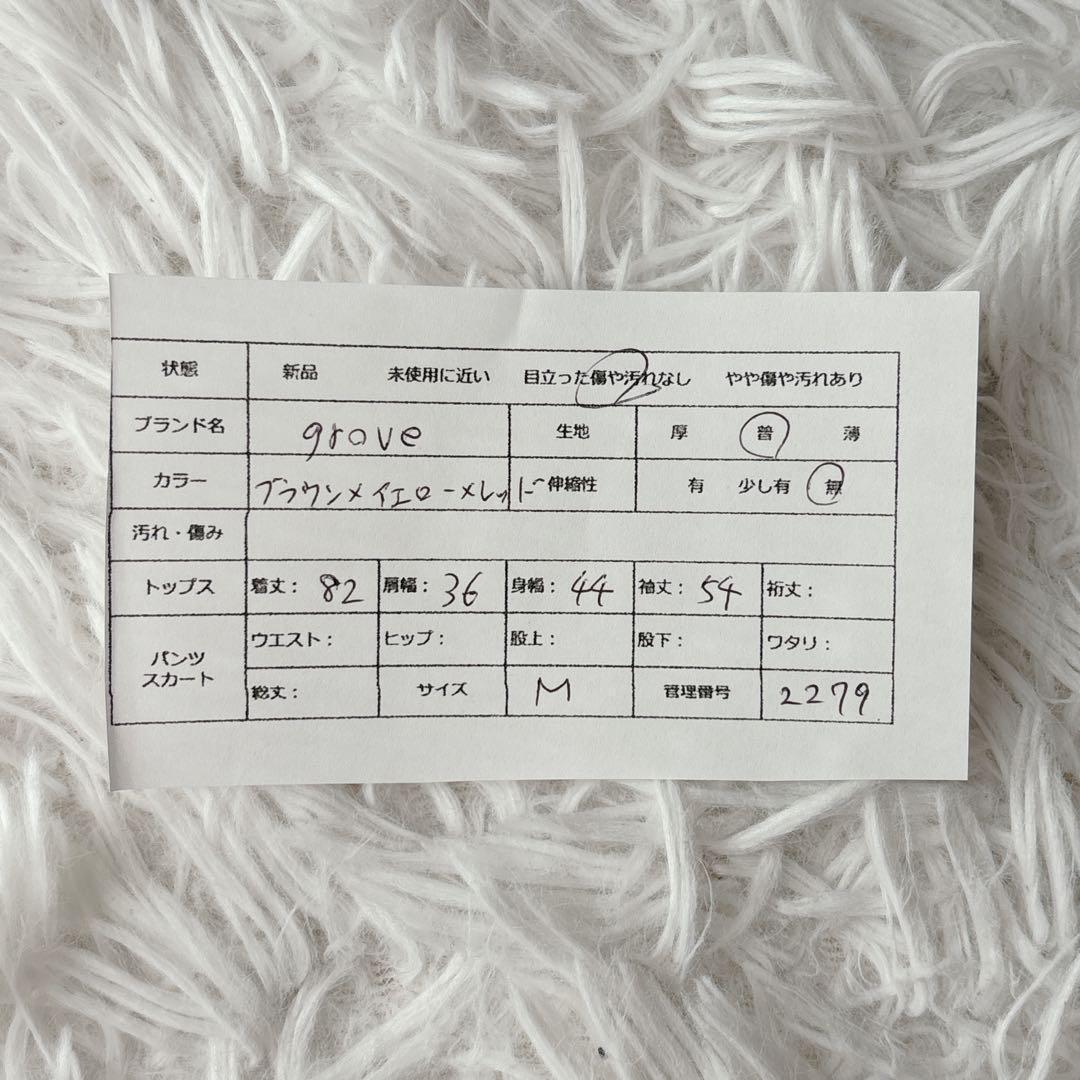 状態 新品 未使用に近い 目立った傷や汚れなし やや傷や汚れあり
ブランド名 grove 生地 厚 普 薄
カラー ブラウン×イエロー×レッド 伸縮性 有 少し有 無
汚れ・傷み
トップス 着丈: 82 肩幅: 36 身幅: 44 袖丈: 54 裄丈:
パンツ スカート ウエスト: ヒップ: 股上: 股下: ワタリ:
総丈: サイズ M 管理番号 2279